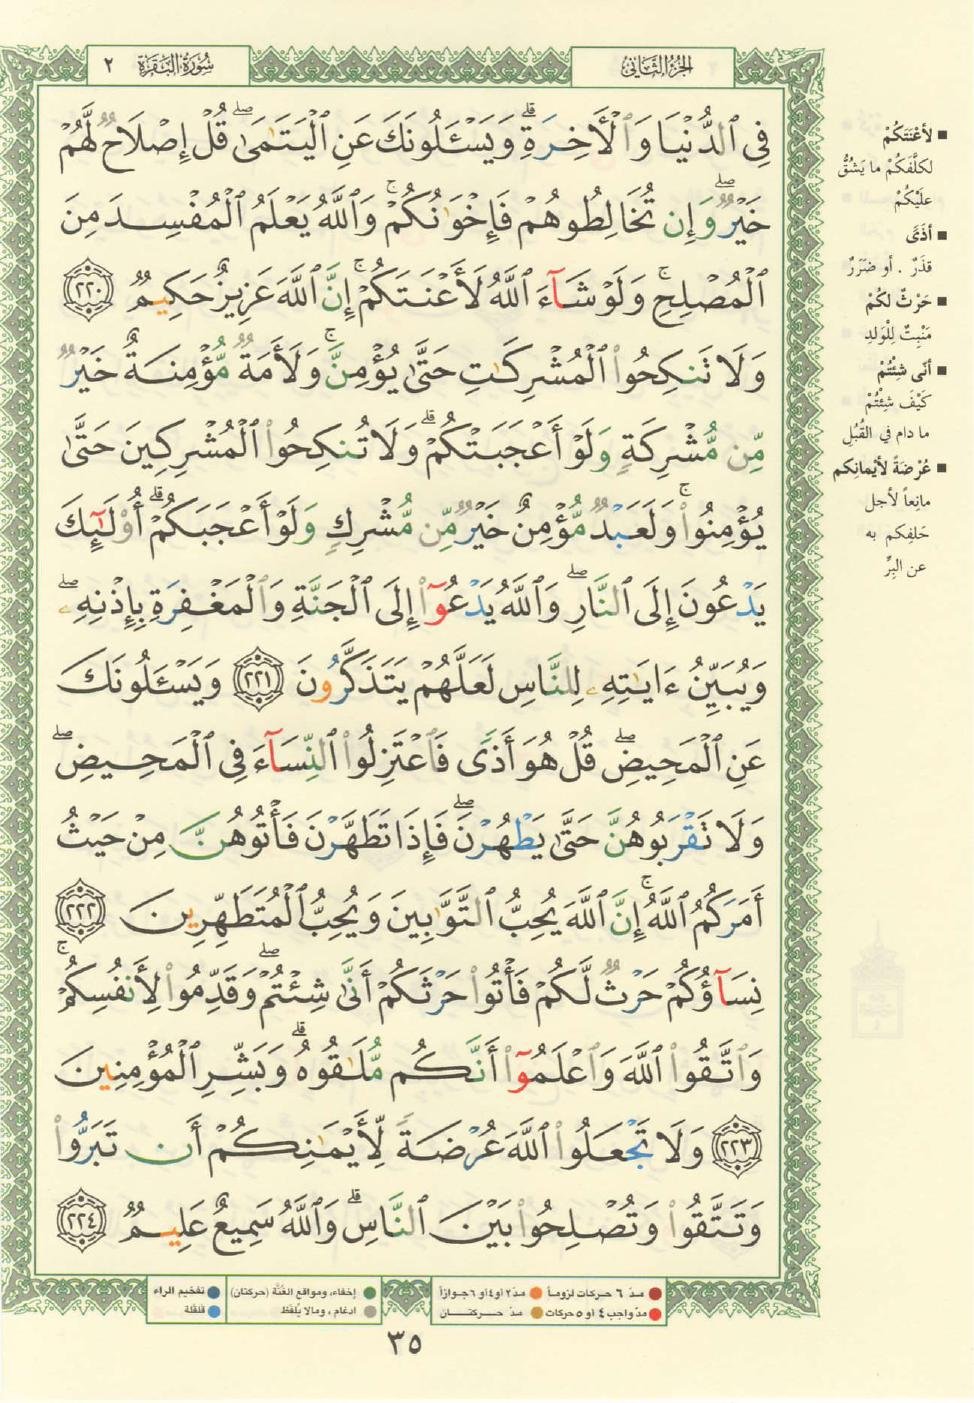 الجزء الثاني
سورة البقرة ٢
فِي ٱلدُّنْيَا وَٱلْأَخِرَةِ ۗ وَيَسْـَٔلُونَكَ عَنِ ٱلْيَتَٰمَىٰ ۖ قُلْ إِصْلَاحٌ لَّهُمْ
خَيْرٌ ۖ وَإِن تُخَالِطُوهُمْ فَإِخْوَٰنُكُمْ ۚ وَٱللَّهُ يَعْلَمُ ٱلْمُفْسِدَ مِنَ
ٱلْمُصْلِحِ ۚ وَلَوْ شَآءَ ٱللَّهُ لَأَعْنَتَكُمْ ۚ إِنَّ ٱللَّهَ عَزِيزٌ حَكِيمٌ ٢٢٠
وَلَا تَنكِحُوا۟ ٱلْمُشْرِكَٰتِ حَتَّىٰ يُؤْمِنَّ ۚ وَلَأَمَةٌ مُّؤْمِنَةٌ خَيْرٌ
مِّن مُّشْرِكَةٍ وَلَوْ أَعْجَبَتْكُمْ ۗ وَلَا تُنكِحُوا۟ ٱلْمُشْرِكِينَ حَتَّىٰ
يُؤْمِنُوا۟ ۚ وَلَعَبْدٌ مُّؤْمِنٌ خَيْرٌ مِّن مُّشْرِكٍ وَلَوْ أَعْجَبَكُمْ ۗ أُو۟لَٰٓئِكَ
يَدْعُونَ إِلَى ٱلنَّارِ ۖ وَٱللَّهُ يَدْعُوٓا۟ إِلَى ٱلْجَنَّةِ وَٱلْمَغْفِرَةِ بِإِذْنِهِۦ ۖ
وَيُبَيِّنُ ءَايَٰتِهِۦ لِلنَّاسِ لَعَلَّهُمْ يَتَذَكَّرُونَ ٢٢١ وَيَسْـَٔلُونَكَ
عَنِ ٱلْمَحِيضِ ۖ قُلْ هُوَ أَذًى فَٱعْتَزِلُوا۟ ٱلنِّسَآءَ فِي ٱلْمَحِيضِ ۖ
وَلَا تَقْرَبُوهُنَّ حَتَّىٰ يَطْهُرْنَ ۖ فَإِذَا تَطَهَّرْنَ فَأْتُوهُنَّ مِنْ حَيْثُ
أَمَرَكُمُ ٱللَّهُ ۚ إِنَّ ٱللَّهَ يُحِبُّ ٱلتَّوَّٰبِينَ وَيُحِبُّ ٱلْمُتَطَهِّرِينَ ٢٢٢
نِسَآؤُكُمْ حَرْثٌ لَّكُمْ فَأْتُوا۟ حَرْثَكُمْ أَنَّىٰ شِئْتُمْ ۖ وَقَدِّمُوا۟ لِأَنفُسِكُمْ ۚ
وَٱتَّقُوا۟ ٱللَّهَ وَٱعْلَمُوٓا۟ أَنَّكُم مُّلَٰقُوهُ ۗ وَبَشِّرِ ٱلْمُؤْمِنِينَ
٢٢٣ وَلَا تَجْعَلُوا۟ ٱللَّهَ عُرْضَةً لِّأَيْمَٰنِكُمْ أَن تَبَرُّوا۟
وَتَتَّقُوا۟ وَتُصْلِحُوا۟ بَيْنَ ٱلنَّاسِ ۗ وَٱللَّهُ سَمِيعٌ عَلِيمٌ ٢٢٤
■ لأَعْنَتَكُمْ
لكلَّفَكُمْ ما يَشُقُّ
عليْكُمْ
■ أَذًى
قذَرٌ . أو ضَرَرٌ
■ حَرْثٌ لكُمْ
مَنْبِتٌ لِلْولدِ
■ أنّى شِئْتُمْ
كَيْفَ شِئْتُمْ
ما دام في القُبُلِ
■ عُرْضَةً لأيْمانِكم
مانِعاً لأجل
حَلفِكم به
عن البِرِّ
مدّ ٦ حركات لزوماً مدّ ٢ أو ٤ أو ٦ جوازاً
مدّ واجب ٤ أو ٥ حركات مدّ حـركتـان
إخفاء، ومواقع الغُنَّة (حركتان)
ادغام ، ومالا يُلفَظ
تفخيم الراء
قلقلة
٣٥